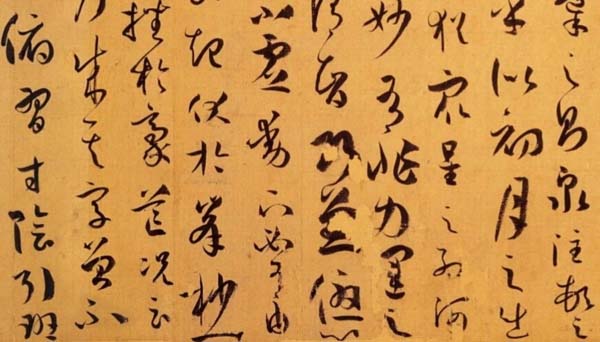 導之則泉注頓之
乎似初月之出
猶眾星之列河
妙有非力運之
謂智巧兼優
不虛動下必有由
起伏於峯杪一
挫於豪芒況云
乃成其字曾不
俯習寸陰引班